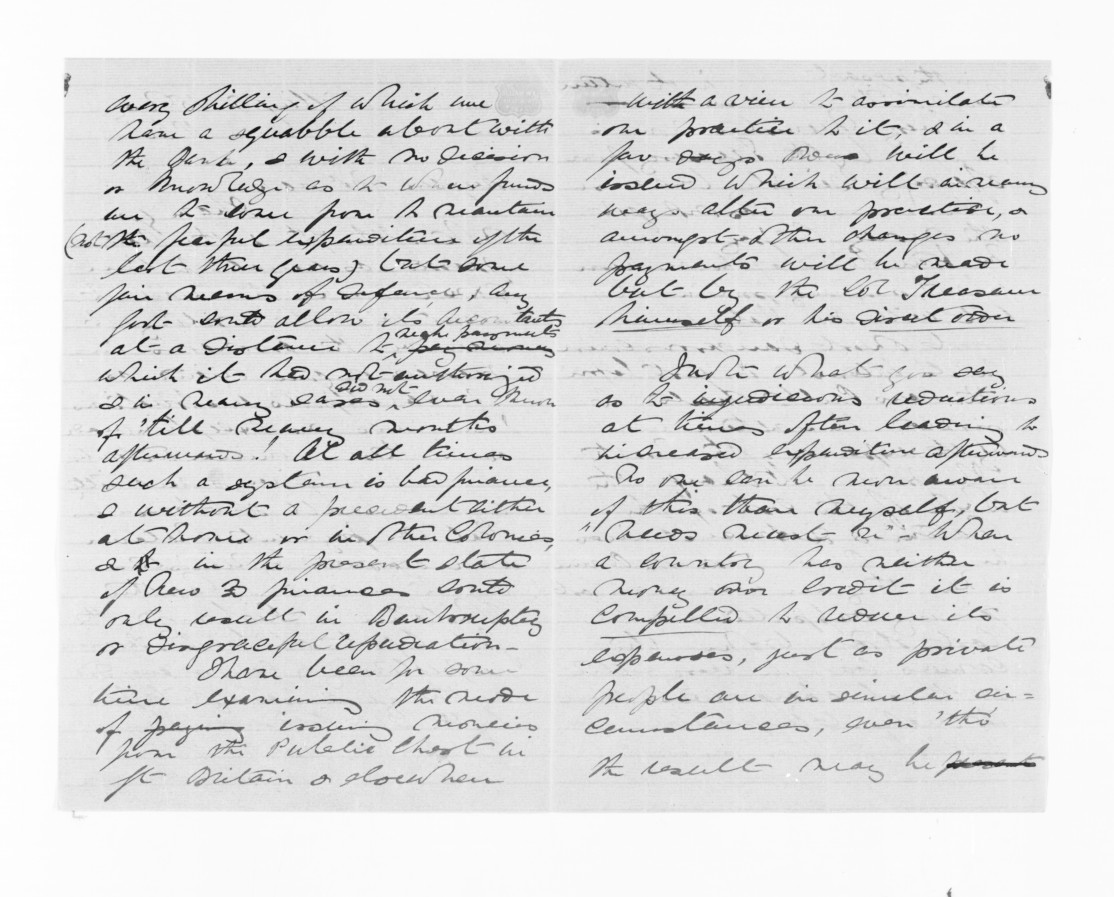 every shilling of which we
have a squabble about with
the Bank, & with no decision
or knowledge as to where funds
are to come from to maintain
(not the fearful expenditure of the
last three years) but some
fair means of defence. Any
Govt could allow its accountants
at a distance to, make payments ~~pay monies~~
which it had not authorized
& in many cases, did not even know
of 'till many months
afterwards! At all times
such a system is bad finance,
& without a precedent either
at home or in other Colonies,
& in the present state
of New Zd finances could
only result in Bankruptcy
or disgraceful repudiation –
I have been for some
time examining the mode
of ~~paying~~ issuing monies
from the Public Chest in
Gt Britain & elsewhere
with a view to assimilate
our practice to it, & in a
few days orders will be
issued which will in many
ways alter our practice, &
amongst other changes no
payments will be made
but by the Col Treasurer
himself or his direct order
I note what you say
as to injudicious reductions
at times often leading to
increased expenditure afterwards
No one can be more aware
of this than myself, but
"needs must &c" – When
a country has neither
money nor credit it is
compelled to reduce its
expenses, just as private
people are in similar cir=
cumstances, even 'tho
the result may be